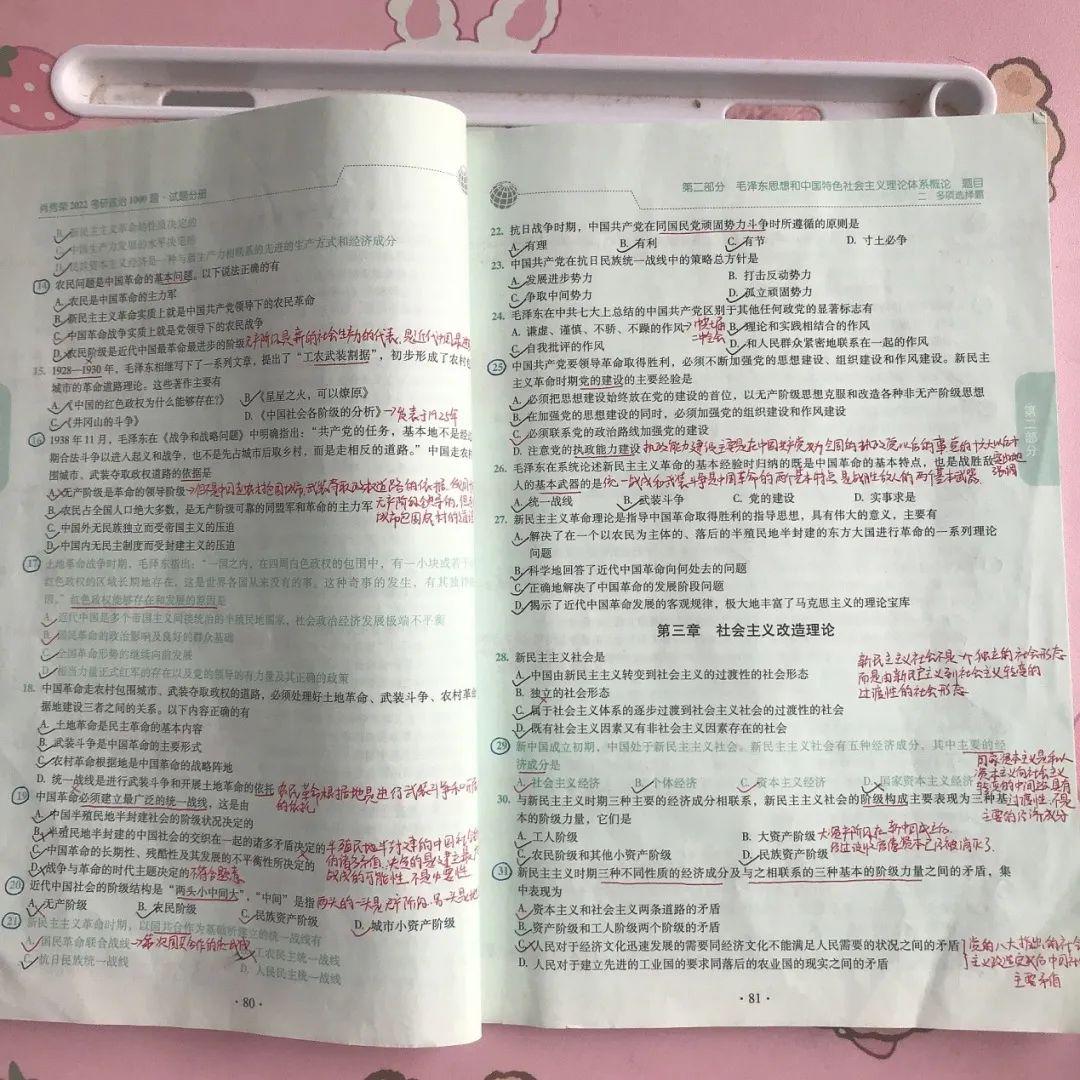 肖秀荣2022考研政治1000题·试题分册
B. 新民主主义革命的性质决定的
C. 中国生产力发展的水平决定的
D. 民族资本主义经济是一种与新生产力相联系的先进的生产方式和经济成分
14. 农民问题是中国革命的基本问题。以下说法正确的有
A. 农民是中国革命的主力军
B. 新民主主义革命实质上就是中国共产党领导下的农民革命
C. 中国革命战争实质上就是党领导下的农民战争
D. 农民阶级是近代中国最革命最进步的阶级 无产阶级是新的社会生产力的代表，是近代中国最进
15. 1928—1930年，毛泽东相继写下了一系列文章，提出了“工农武装割据”，初步形成了农村包
城市的革命道路理论。这些著作主要有
A.《中国的红色政权为什么能够存在？》 B.《星星之火，可以燎原》
C.《井冈山的斗争》 D.《中国社会各阶级的分析》→发表于1925年
16. 1938年11月，毛泽东在《战争和战略问题》中明确指出：“共产党的任务，基本地不是经过
期合法斗争以进入起义和战争，也不是先占城市后取乡村，而是走相反的道路。”中国走农
围城市、武装夺取政权道路的依据是
A. 无产阶级是革命的领导阶级
B. 农民占全国人口绝大多数，是无产阶级可靠的同盟军和革命的主力军
C. 中国外无民族独立而受帝国主义的压迫
D. 中国内无民主制度而受封建主义的压迫
17. 土地革命战争时期，毛泽东指出：“一国之内，在四周白色政权的包围中，有一小块或若干
红色政权的区域长期地存在，这是世界各国从来没有的事。这种奇事的发生，有其独特
因。”红色政权能够存在和发展的原因是
A. 近代中国是多个帝国主义间接统治的半殖民地国家，社会政治经济发展极端不平衡
B. 国民革命的政治影响及良好的群众基础
C. 全国革命形势的继续向前发展
D. 相当力量正式红军的存在以及党的领导的有力量及其正确的政策
18. 中国革命走农村包围城市、武装夺取政权的道路，必须处理好土地革命、武装斗争、农村革命
据地建设三者之间的关系。以下内容正确的有
A. 土地革命是民主革命的基本内容
B. 武装斗争是中国革命的主要形式
C. 农村革命根据地是中国革命的战略阵地
D. 统一战线是进行武装斗争和开展土地革命的依托 农民革命根据地是进行武装斗争和
的依托
19. 中国革命必须建立最广泛的统一战线，这是由
A. 中国半殖民地半封建社会的阶级状况决定的
B. 半殖民地半封建的中国社会的交织在一起的诸多矛盾决定的
C. 中国革命的长期性、残酷性及其发展的不平衡性所决定的
D. 战争与革命的时代主题决定的 不符合题意
战线的可能性，不是必要性
20. 近代中国社会的阶级结构是“两头小中间大”，“中间”是指
A. 无产阶级 B. 农民阶级 C. 民族资产阶级 D. 城市小资产阶级
21. 新民主主义革命时期，以国共合作为基础所建立的统一战线有
A. 国民革命联合战线 B. 工农民主统一战线
C. 抗日民族统一战线 D. 人民民主统一战线
·80·
第二部分 毛泽东思想和中国特色社会主义理论体系概论 题目
二 多项选择题
22. 抗日战争时期，中国共产党在同国民党顽固势力斗争时所遵循的原则是
A. 有理 B. 有利 C. 有节 D. 寸土必争
23. 中国共产党在抗日民族统一战线中的策略总方针是
A. 发展进步势力 B. 打击反动势力
C. 争取中间势力 D. 孤立顽固势力
24. 毛泽东在中共七大上总结的中国共产党区别于其他任何政党的显著标志有
A. 谦虚、谨慎、不骄、不躁的作风 B. 理论和实践相结合的作风
C. 自我批评的作风 D. 和人民群众紧密地联系在一起的作风
25. 中国共产党要领导革命取得胜利，必须不断加强党的思想建设、组织建设和作风建设。新民主
主义革命时期党的建设的主要经验是
A. 必须把思想建设始终放在党的建设的首位，以无产阶级思想克服和改造各种非无产阶级思想
B. 在加强党的思想建设的同时，必须加强党的组织建设和作风建设
C. 必须联系党的政治路线加强党的建设
D. 注意党的执政能力建设
26. 毛泽东在系统论述新民主主义革命的基本经验时归纳的既是中国革命的基本特点，也是战胜敌
人的基本武器的是 统一战线和武装斗争是中国革命的两个基本特点 是战胜敌人的两个基本武器
A. 统一战线 B. 武装斗争 C. 党的建设 D. 实事求是
27. 新民主主义革命理论是指导中国革命取得胜利的指导思想，具有伟大的意义，主要有
A. 解决了在一个以农民为主体的、落后的半殖民地半封建的东方大国进行革命的一系列理论
问题
B. 科学地回答了近代中国革命向何处去的问题
C. 正确地解决了中国革命的发展阶段问题
D. 揭示了近代中国革命发展的客观规律，极大地丰富了马克思主义的理论宝库
第三章 社会主义改造理论
28. 新民主主义社会是
新民主主义社会不是一个独立的社会形态
A. 中国由新民主主义转变到社会主义的过渡性的社会形态
而是由新民主主义到社会主义转变的
B. 独立的社会形态
过渡性的社会形态
C. 属于社会主义体系的逐步过渡到社会主义社会的过渡性的社会
D. 既有社会主义因素又有非社会主义因素存在的社会
29. 新中国成立初期，中国处于新民主主义社会。新民主主义社会有五种经济成分，其中主要的经
济成分是
A. 社会主义经济 B. 个体经济 C. 资本主义经济 D. 国家资本主义经济
30. 与新民主主义时期三种主要的经济成分相联系，新民主主义社会的阶级构成主要表现为三种基
本的阶级力量，它们是
A. 工人阶级 B. 大资产阶级
C. 农民阶级和其他小资产阶级 D. 民族资产阶级
31. 新民主主义时期三种不同性质的经济成分及与之相联系的三种基本的阶级力量之间的矛盾，集
中表现为
A. 资本主义和社会主义两条道路的矛盾
B. 资产阶级和工人阶级两个阶级的矛盾
C. 人民对于经济文化迅速发展的需要同经济文化不能满足人民需要的状况之间的矛盾
D. 人民对于建立先进的工业国的要求同落后的农业国的现实之间的矛盾
党的八大指出的社会
主义改造完成后中国社
主要矛盾
·81·
第二部分